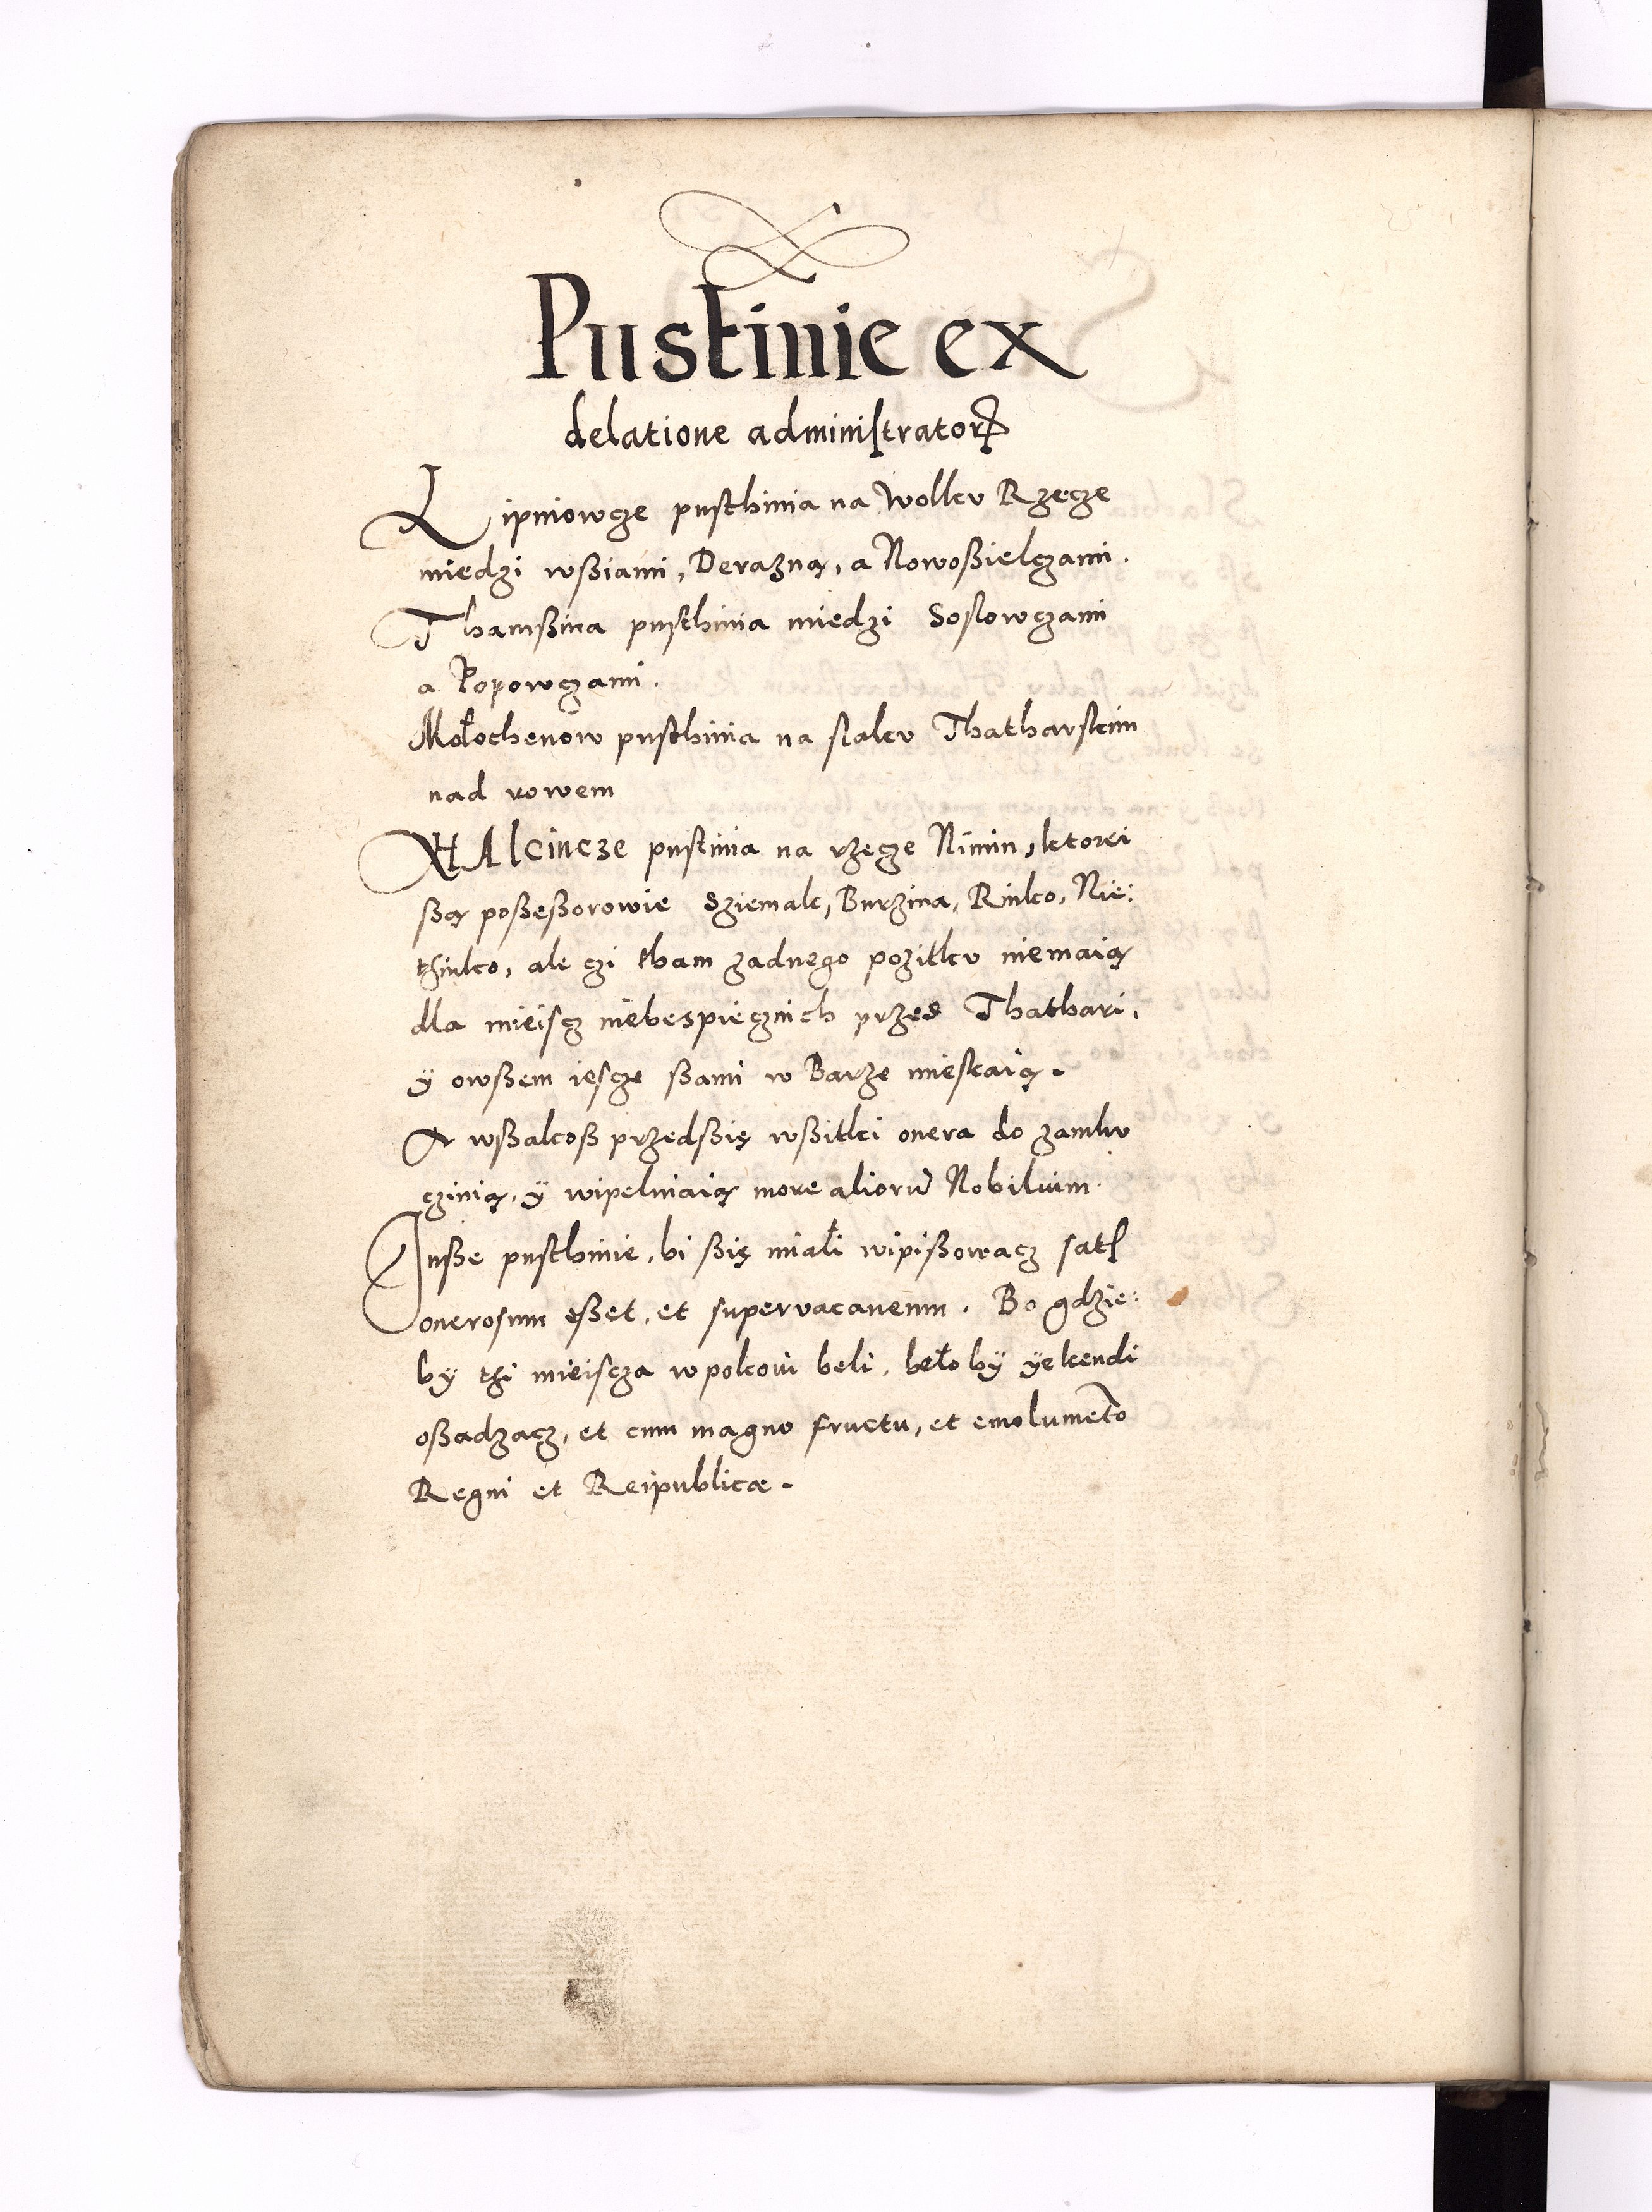 Pustinie ex
delatione administratorꝝ
Lipniowcze pusthinia na Wolku Rzęcze
miedzi wßiami, Derazną, a Nowoßielczami.
Thamßina pusthinia miedzi Soslowczami
a Popowczami.
Mołochenow pusthinia na slaku Thatharskim
nad rowem
Halcincze pustinia na rzęcze Nimin, ktorei
ßą poßeßorowie Sziemak, Burzina, Rinko, Nie:
thinko, ale czi tham zadnego pozitku niemaią
dla mieiscz niebespiecznich przed Thathari,
ÿ owßem iescze ßami w Barze mieskaią.
A wßakoß przedßię wßitki onera do zamku
czinią, ÿ wipelniaią more aliorū Nobilium.
Inße pusthinie, bi ßię miałi wipißowacz satꝭ
onerosum eßet, et supervacaneum. Bo gdzie:
by thi mieiscza w pokoiu beli, beło bÿ ÿe kendi
oßadzacz, et cum magno fructu, et emolumēto
Regni et Reipublicæ.